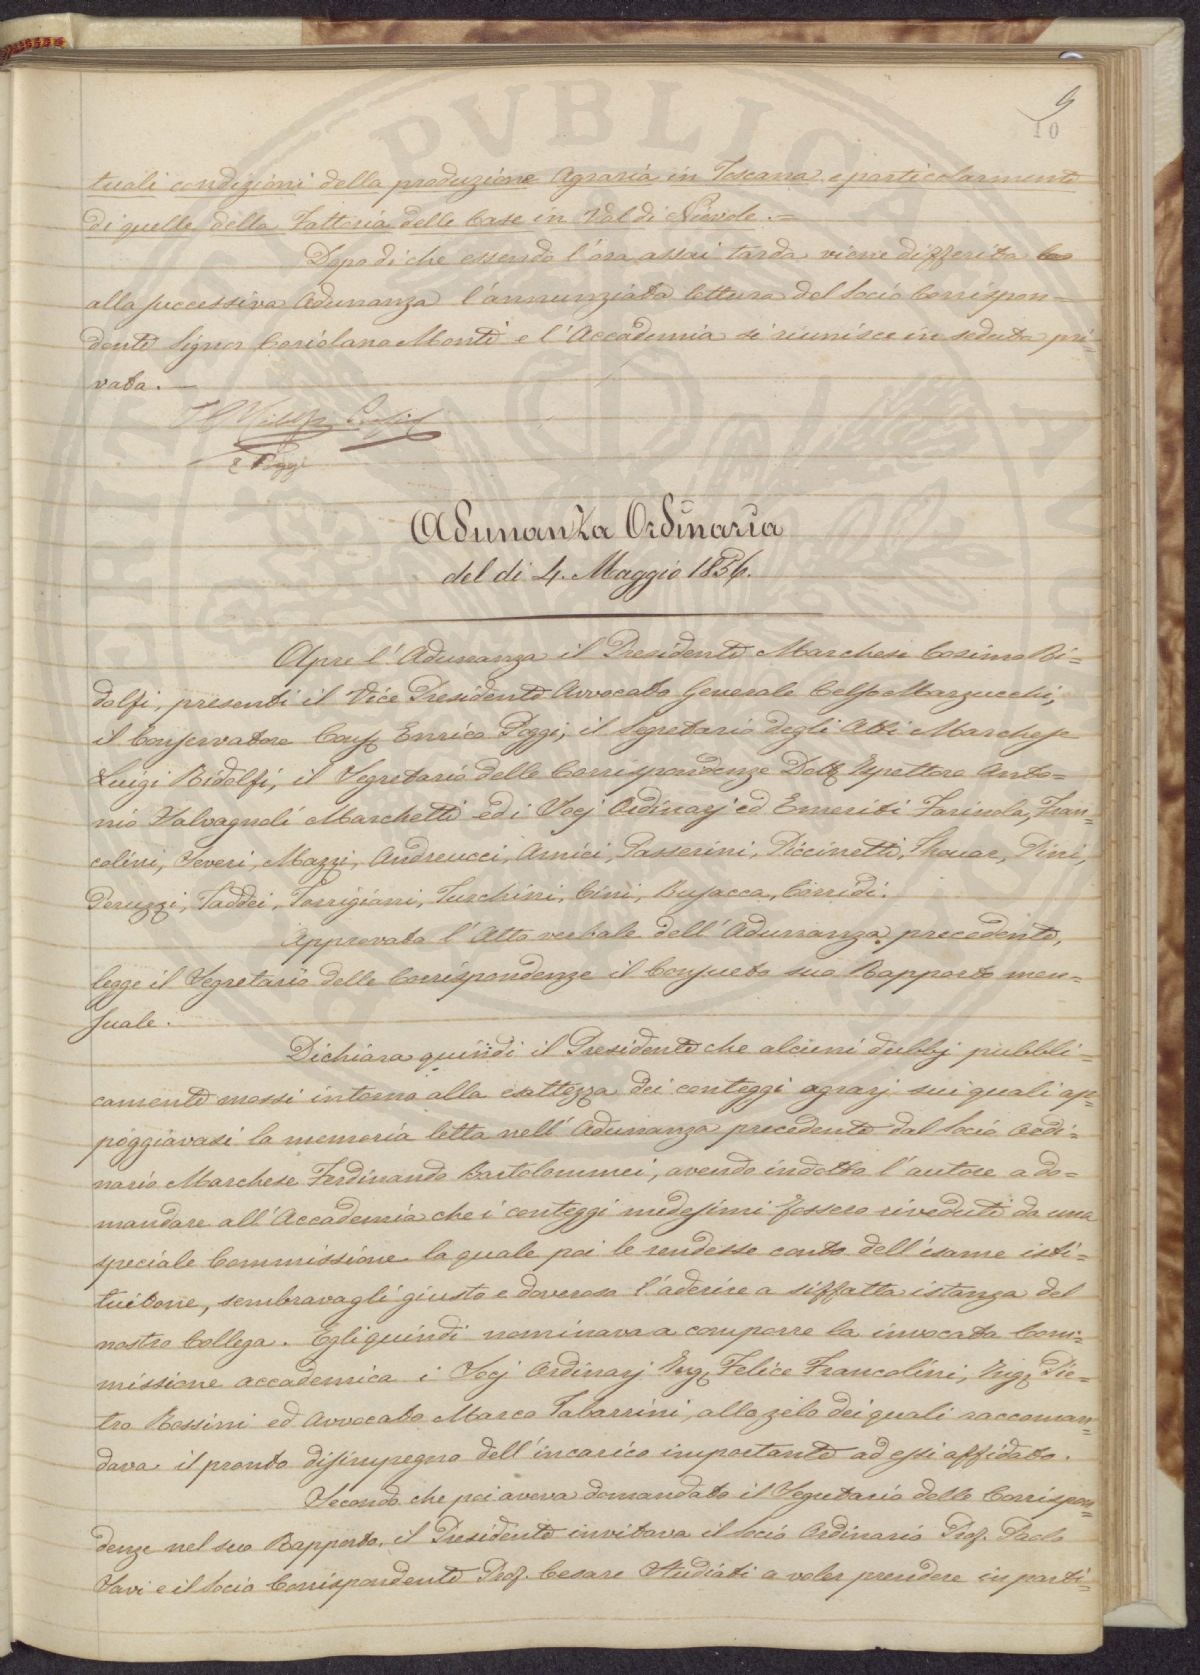 9
10
tuali condizioni della produzione Agraria in Toscana e particolarmente
di quelle della Fattoria delle Case in Val di Nievole.=
Dopo di che essendo l'ora assai tarda viene differita
alla successiva Adunanza l'annunziata lettura del Socio Corrispon=
dente Signor Coriolano Monti e l'Accademia si riunisce in seduta pri=
vata.—
E Poggi
Adunanza Ordinaria
del di 4. Maggio 1856.
Apre l'Adunanza il Presidente Marchese Cosimo Ri=
dolfi, presenti il Vice Presidente Avvocato Generale Celso Marzucchi,
il Conservatore Cons. Enrico Poggi, il Segretario degli Atti Marchese
Luigi Ridolfi, il Segretario delle Corrispondenze Dott. Ispettore Anto=
nio Salvagnoli Marchetti ed i Socj Ordinarj ed Emeriti Farinola, Fran=
colini, Severi, Mazzi, Andreucci, Amici, Passerini, Piccinetti, Thouar, Pini,
Peruzzi, Taddei, Torrigiani, Turchini, Cini, Busacca, Corridi.
Approvato l'Atto verbale dell'Adunanza precedente,
legge il Segretario delle Corrispondenze il Consueto suo Rapporto men=
suale.
Dichiara quindi il Presidente che alcuni dubbj pubbli=
camente mossi intorno alla esattezza dei conteggi agrarj sui quali ap=
poggiavasi la memoria letta nell'Adunanza precedente dal Socio Ordi=
nario Marchese Ferdinando Bartolommei, avendo indotto l'autore a do=
mandare all'Accademia che i conteggi medesimi fossero riveduti da una
speciale Commissione la quale poi le rendesse conto dell'esame isti=
tuitone, sembravagli giusto e doveroso l'aderire a siffatta istanza del
nostro Collega. Egli quindi nominava a comporre la invocata Com=
missione accademica i Socj Ordinarj Ing. Felice Francolini, Ing. Pie=
tro Rossini ed Avvocato Marco Tabarrini, allo zelo dei quali raccoman=
dava il pronto disimpegno dell'incarico importante ad essi affidato.
Secondo che poi aveva domandato il Segretario delle Corrispon=
denze nel suo Rapporto, il Presidente invitava il Socio Ordinario Prof. Paolo
Savi e il Socio Corrispondente Prof. Cesare Studiati a voler prendere in parti=